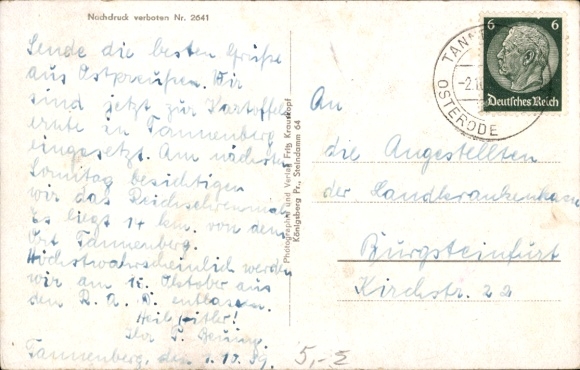 Nachdruck verboten Nr. 2641
Sende die besten Grüße
aus Ostpreußen. Wir
sind jetzt zur Kartoffel
ernte in Tannenberg
eingesetzt. Am nächsten
Sonntag besichtigen
wir das Reichsehrenmal
Es liegt 14 km. von dem
Ort Tannenberg.
Höchstwahrscheinlich werden
wir am 15. Oktober aus
dem R. A. D. entlassen.
Heil Hitler!
Ihr F.
Tannenberg, den 1.10.39.
Photographie und Verlag Fritz Krauskopf
Königsberg Pr., Steindamm 64
6 6
Deutsches Reich
TANN
-2.10
OSTERODE
An
die Angestellten
der Landkrankenkasse
Burgsteinfurt
Kirchstr. 22
5,-